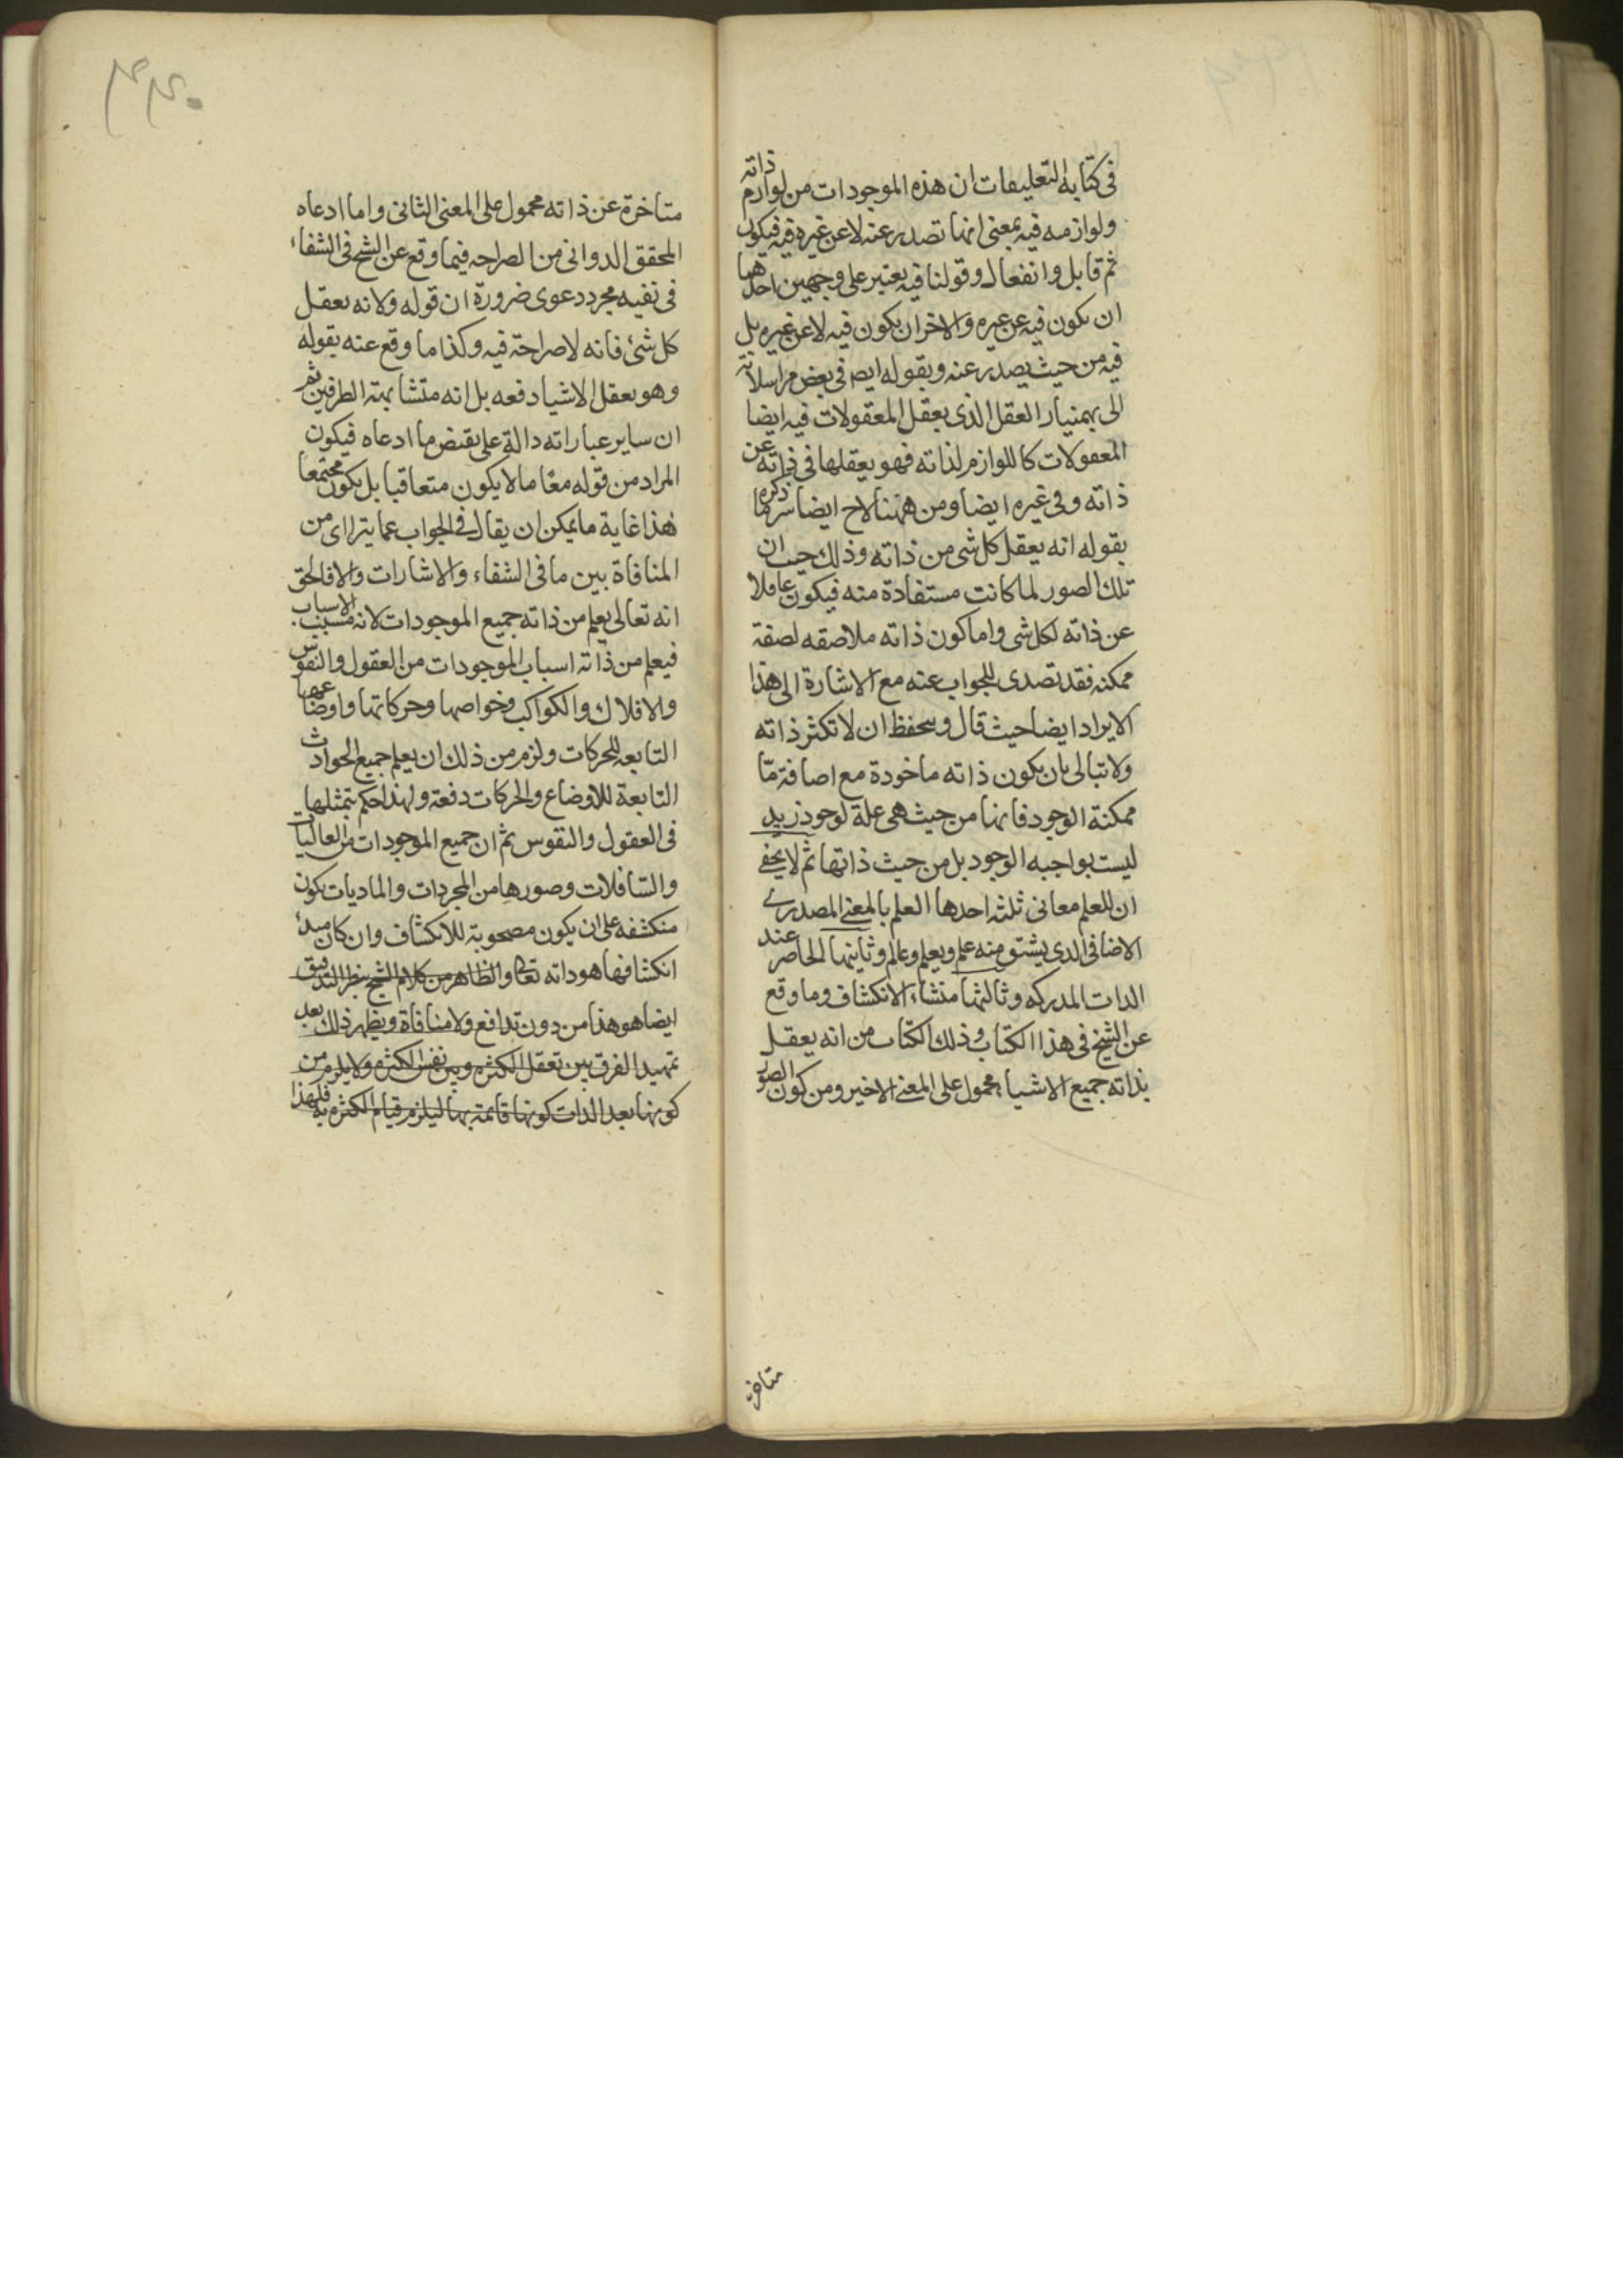 فى كتابه التعليقات ان هذه الموجودات من لوازم ذاته
ولوازمه فيه بمعنى انها تصدر عنه لا عن غيره فيه فيكون
ثم قابل وانفعال وقولنا فيه يعتبر على وجهين احدهما
ان يكون فيه عن غيره والاخر ان يكون فيه لا عن غيره بل
فيه من حيث يصدر عنه وبقوله ايضا فى بعض مراسلاته
الى بهمنيار العقل الذى يعقل المعقولات فيه ايضا
المعقولات كاللوازم لذاته فهو يعقلها فى ذاته عن
ذاته وفى غيره ايضا ومن ههنا لاح ايضا سر ما ذكره
بقوله انه يعقل كل شى من ذاته وذلك حيث ان
تلك الصور لما كانت مستفادة منه فيكون عاقلا
عن ذاته لكل شى واما كون ذاته ملاصقه لصفة
ممكنه فقد تصدى للجواب عنه مع الاشارة الى هذا
الايراد ايضا حيث قال وتحفظ ان لا تكثر ذاته
ولا تبالى بان يكون ذاته ماخوذة مع اضافة ما
ممكنة الوجود فانها من حيث هى علة لوجود زيد
ليست بواجبه الوجود بل من حيث ذاتها ثم لا يخفى
ان للعلم معانى ثلثه احدها العلم بالمعنى المصدرى
الاضافى الذى يشتق منه علم ويعلم وعالم وثانيها الحاضر عند
الذات المدركه وثالثها منشاء الانكشاف وما وقع
عن الشيخ فى هذا الكتاب وذلك الكتاب من انه يعقل
بذاته جميع الاشياء محمول على المعنى الاخير ومن كون الصور
متاخرة
٣٣٠
متاخرة عن ذاته محمول على المعنى الثانى واما ادعاه
المحقق الدوانى من الصراحه فيما وقع عن الشيخ فى الشفاء
فى نفيه مجرد دعوى ضرورة ان قوله ولانه يعقل
كل شئ فانه لا صراحة فيه وكذا ما وقع عنه بقوله
وهو يعقل الاشياء دفعه بل انه متشابهة الطرفين ثم
ان ساير عباراته دالة على نقيض ما ادعاه فيكون
المراد من قوله معًا ما لا يكون متعاقبا بل يكون مجتمعا
هذا غاية ما يمكن ان يقال فى الجواب عما يتراى من
المنافاة بين ما فى الشفاء والاشارات والا فالحق
انه تعالى يعلم من ذاته جميع الموجودات لانه مسبب الاسباب
فيعلم من ذاته اسباب الموجودات من العقول والنفوس
والافلاك والكواكب وخواصها وحركاتها واوضاعها
التابعه للحركات ولزم من ذلك ان يعلم جميع الحوادث
التابعة للاوضاع والحركات دفعة ولهذا حكم بتمثلها
فى العقول والنفوس ثم ان جميع الموجودات من العاليات
والسافلات وصورها من المجردات والماديات يكون
منكشفه على ان يكون مصحوبة للانكشاف وان كان مبدئ
انكشافها هو ذاته تعالى والظاهر من كلام الشيخ بنظر التدقيق
ايضا هو هذا من دون تدافع ولا منافاة ويظهر ذلك بعد
تمهيد الفرق بين تعقل الكثره وبين نفس الكثره ولا يلزم من
كونها بعد الذات كونها قائمة بها ليلزم قيام الكثره به فلهذا